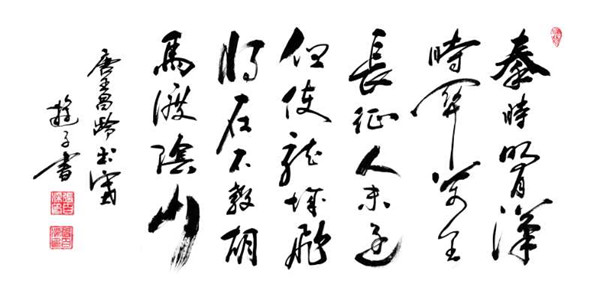 秦時明月漢
時關萬里
長征人未還
但使龍城飛
将在不教胡
馬渡陰山
唐王昌齡出塞
子書